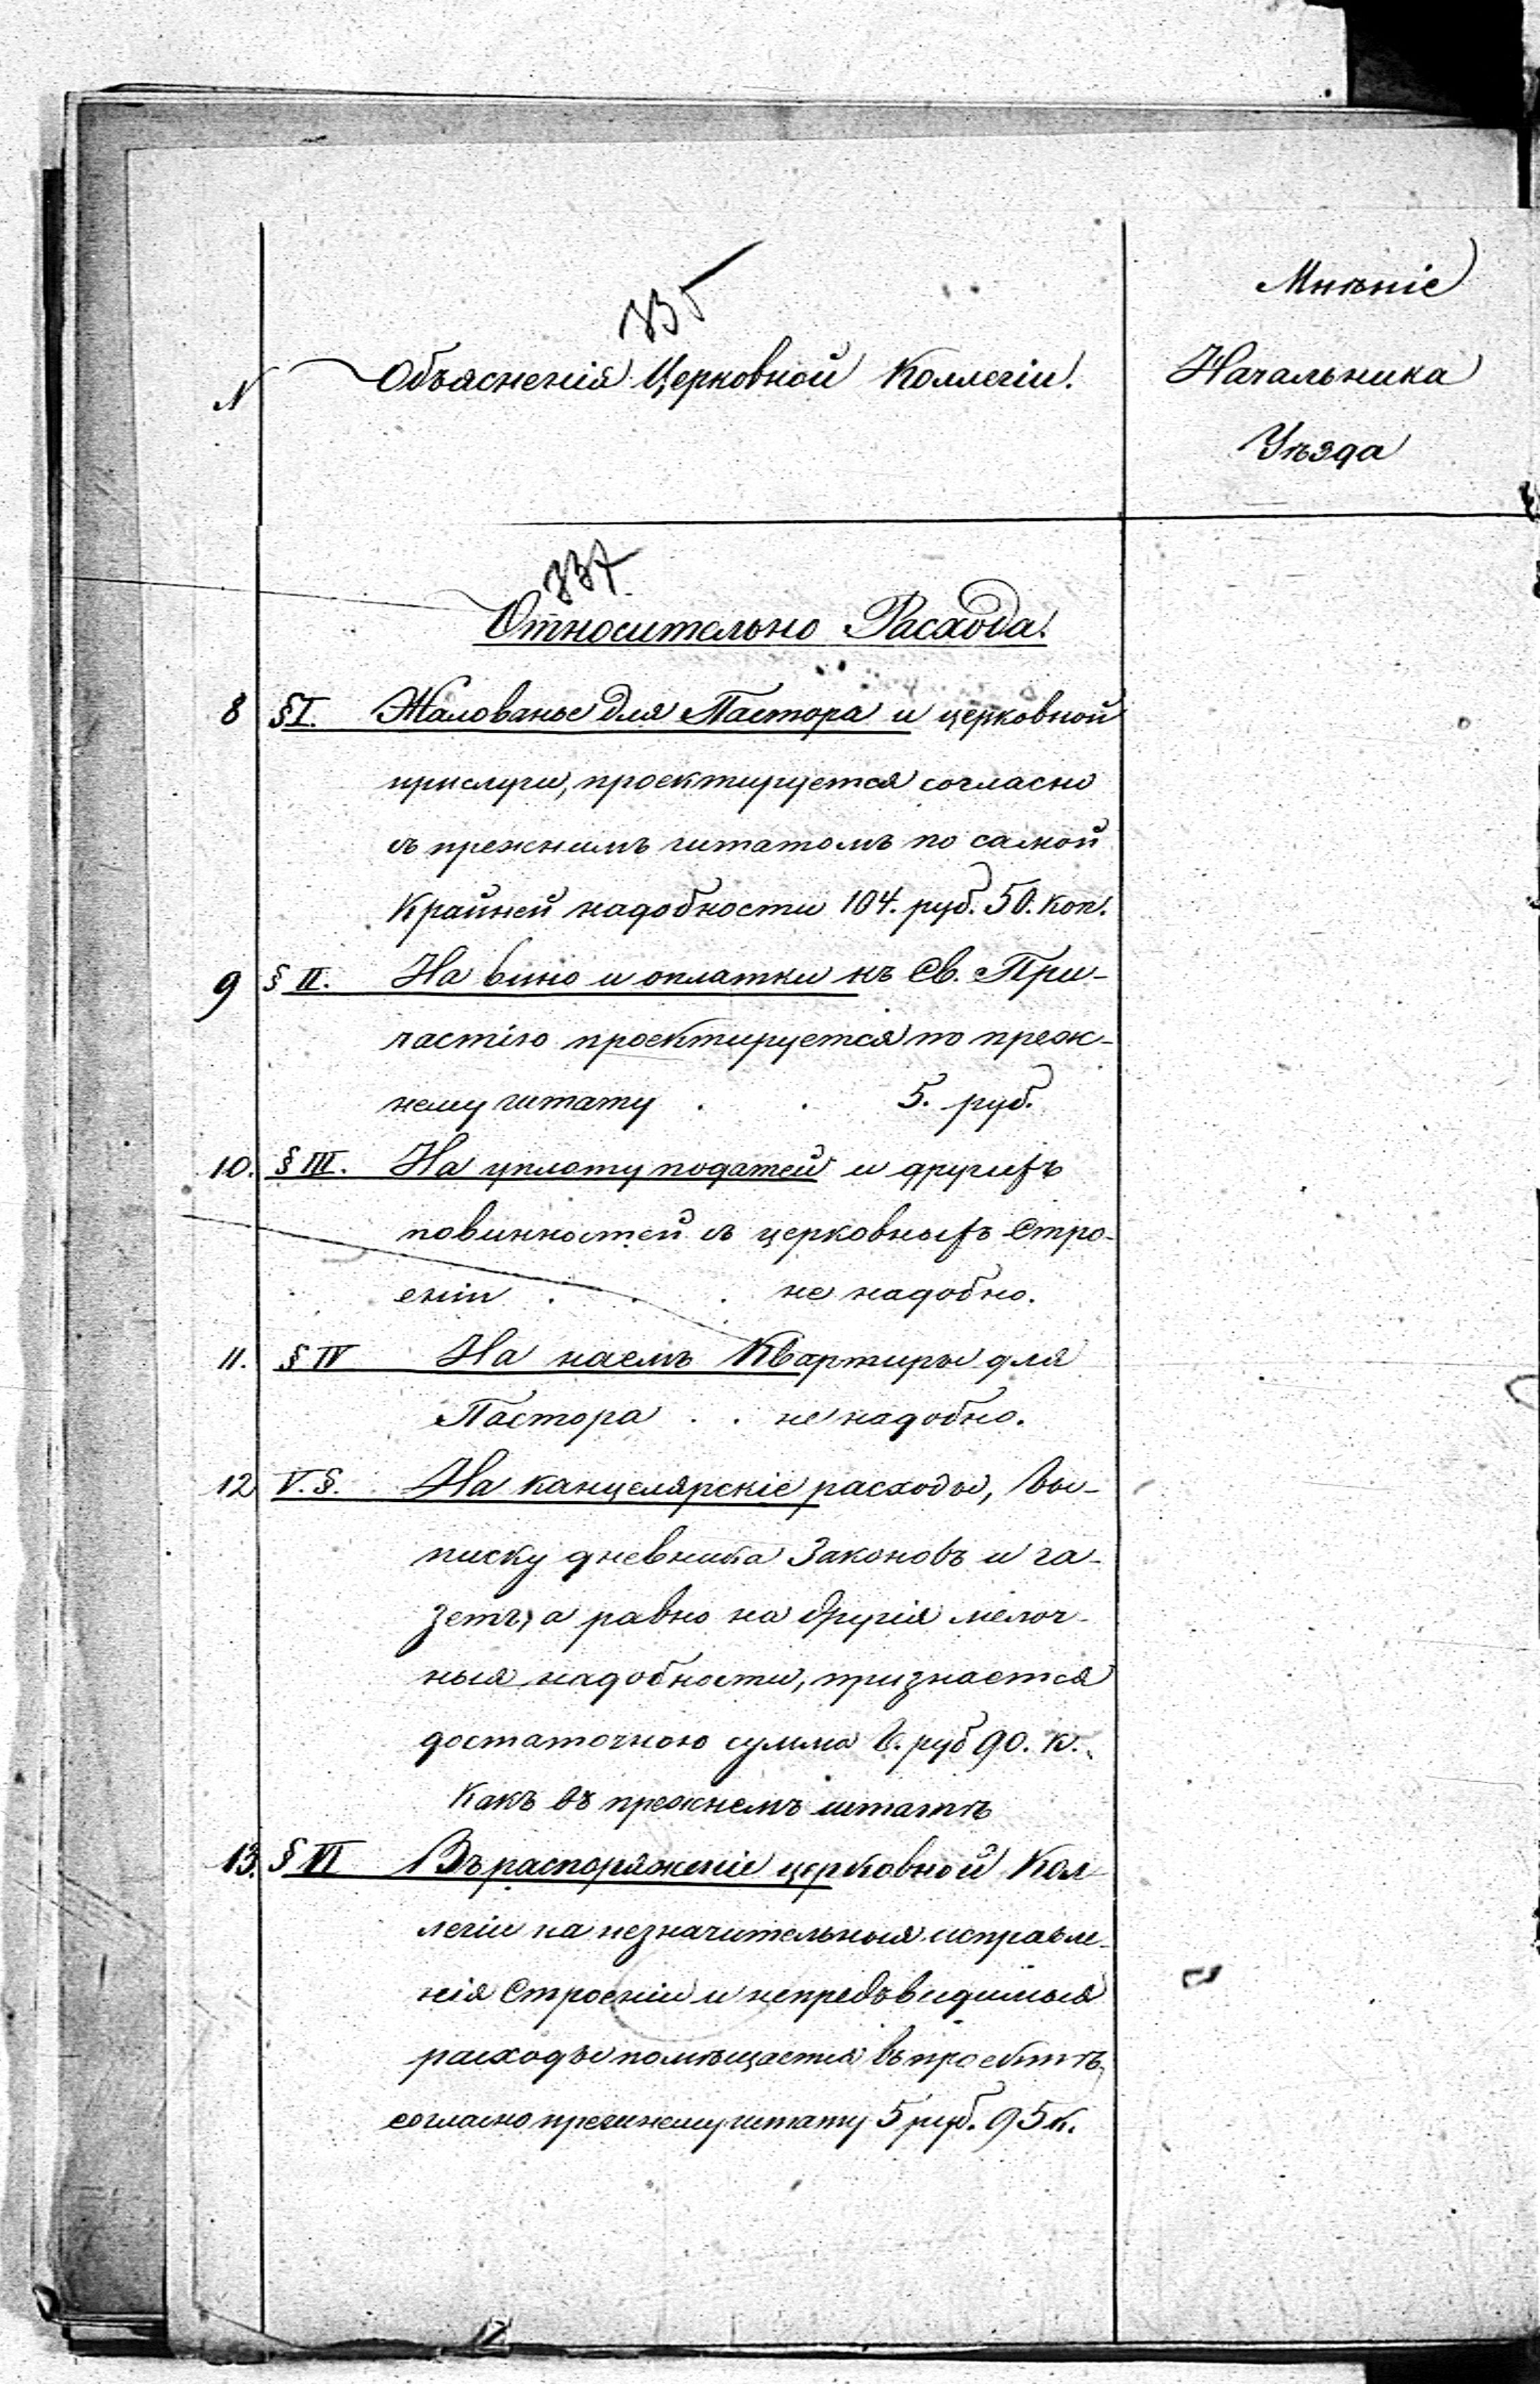 335
Мнѣніе
N Объясненія Церковной Коллегіи. Начальника
Уѣзда
337.
Относительно Расхода.
8 §I. Жалованье для Пастора и церковной
прислуги, проектируется согласно
съ прежнимъ штатомъ по самой
Крайней надобности 104. руб. 50. коп.
9 § II. На вино и оплатки къ Св. При-
частію проектируется по преж-
нему штату . . 5. руб.
10. § III. На уплату податей и другихъ
повинностей съ церковныхъ Стро-
еніи . . . не надобно.
11. § IV На наемъ Квартиры для
Пастора . . не надобно.
12 V. §. На канцелярскіе расходы, вы-
писку дневника Законовъ и га-
зетъ, а равно на другія мелоч-
ныя надобности, признается
достаточною сумма 6. руб 90. к.
Какъ въ прежнемъ штатѣ
13. § VI Въ распоряженіе церковной Кол
легіи на незначительныя исправле-
нія Строеніи и непредъвидимыя
расходы помѣщается въ проектѣ,
согласно прежнему штату 5 руб. 95 к.